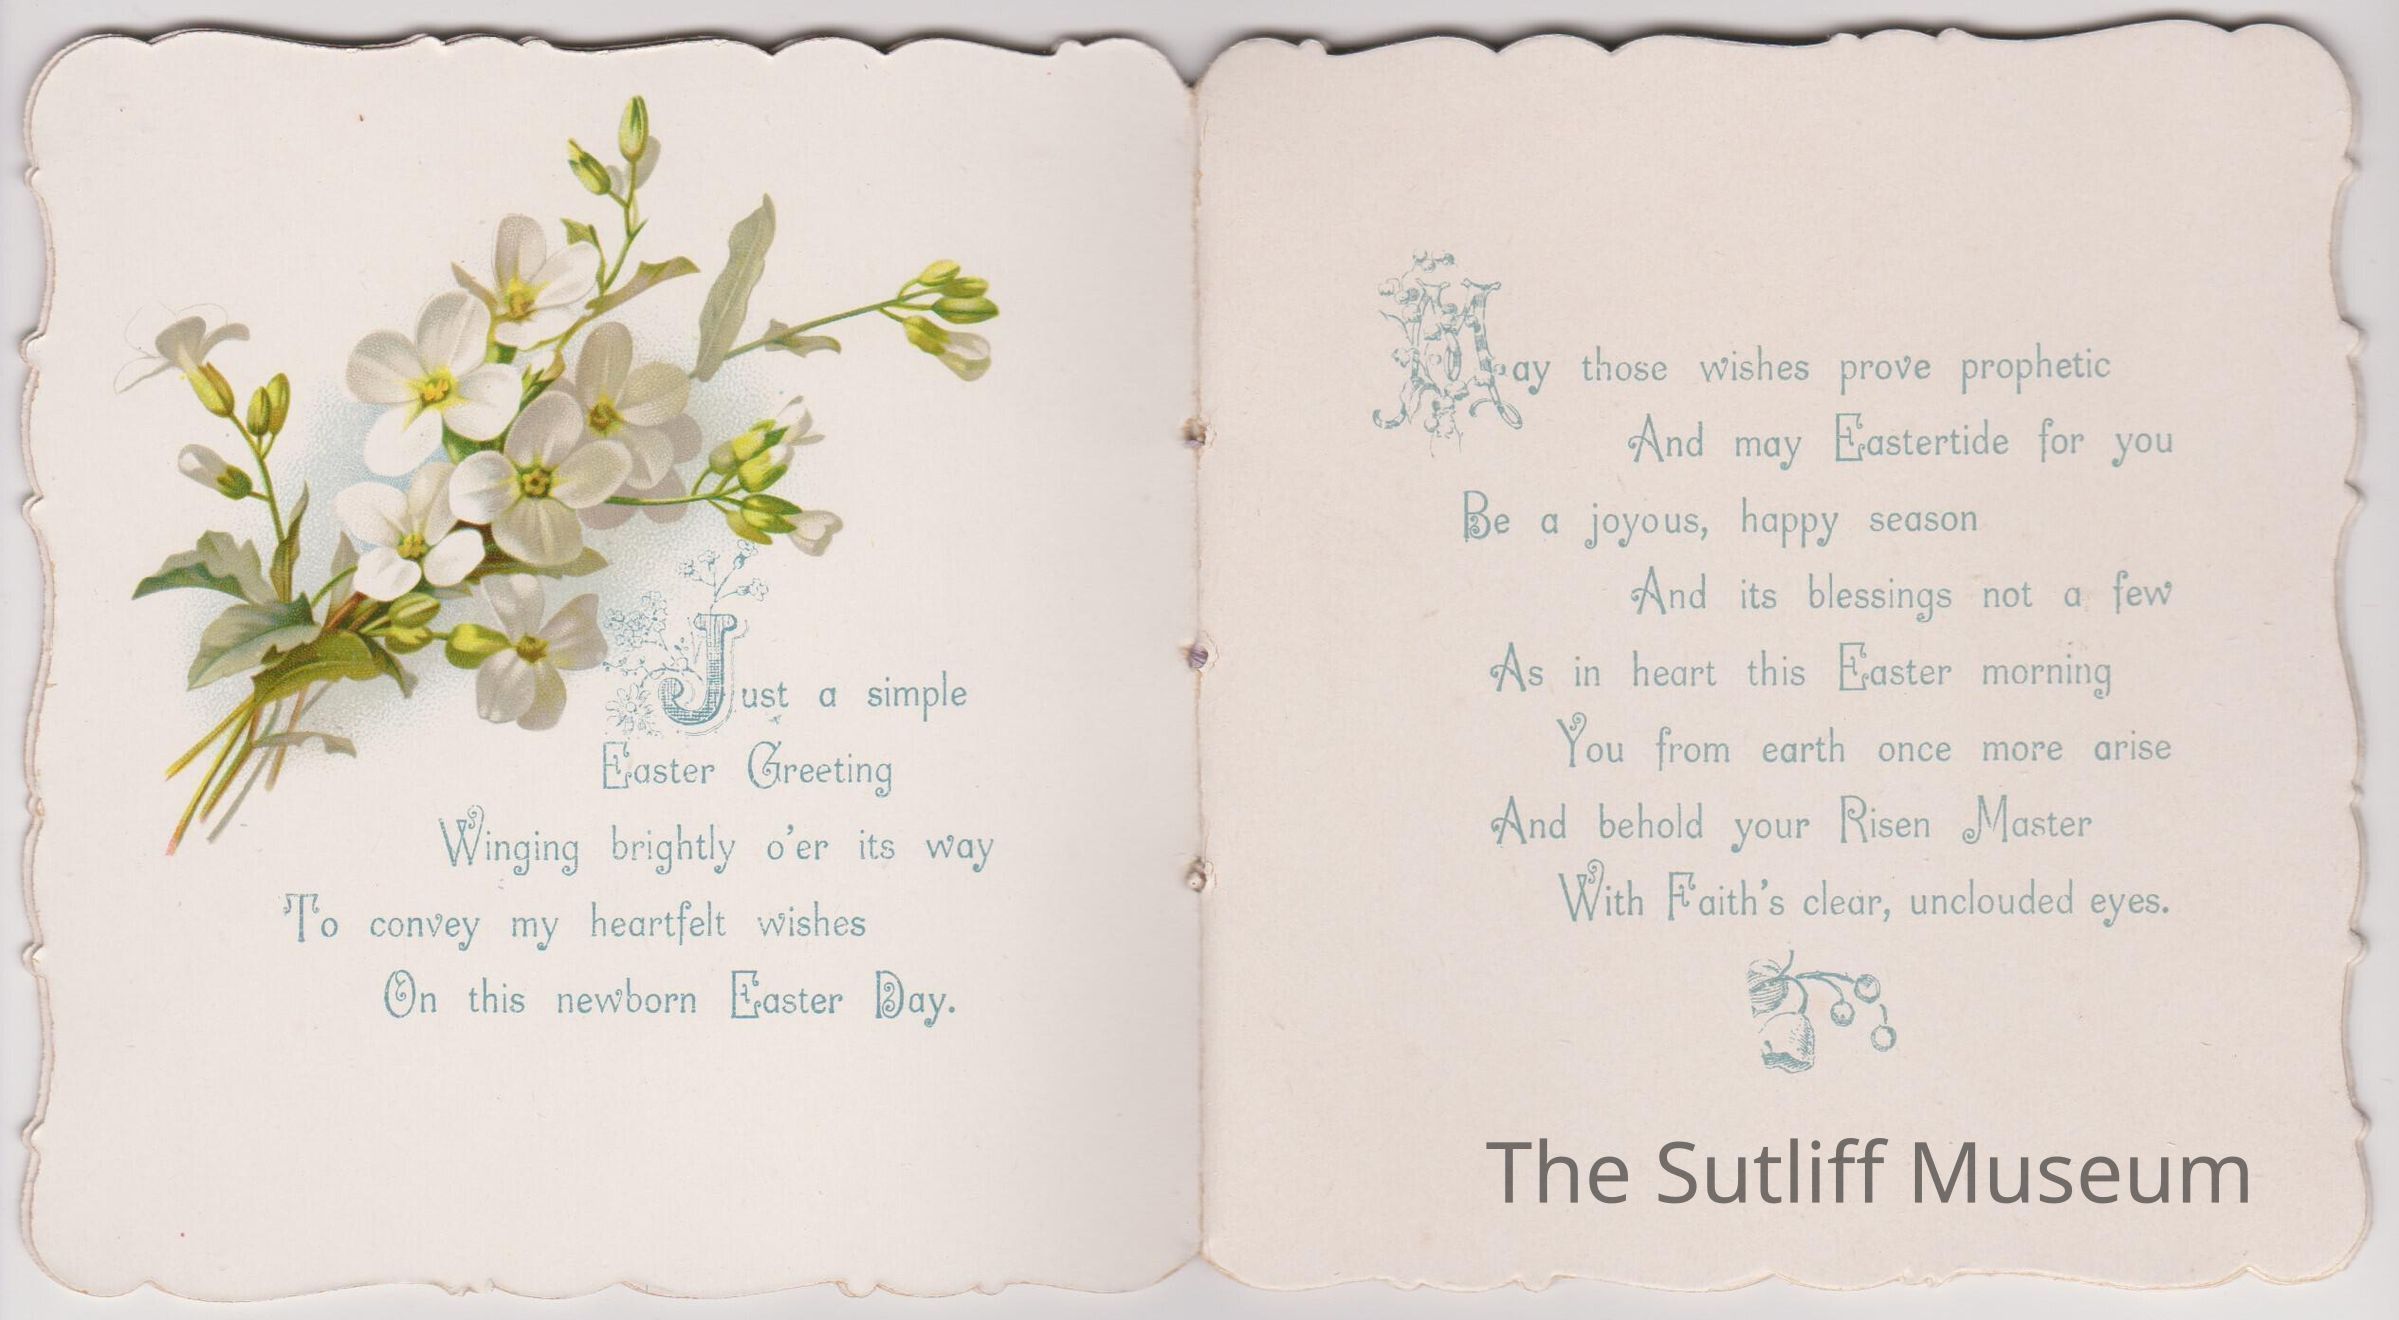 Just a simple
Easter Greeting
Winging brightly o'er its way
To convey my heartfelt wishes
On this newborn Easter Day.
May those wishes prove prophetic
And may Eastertide for you
Be a joyous, happy season
And its blessings not a few
As in heart this Easter morning
You from earth once more arise
And behold your Risen Master
With Faith's clear, unclouded eyes.
The Sutliff Museum